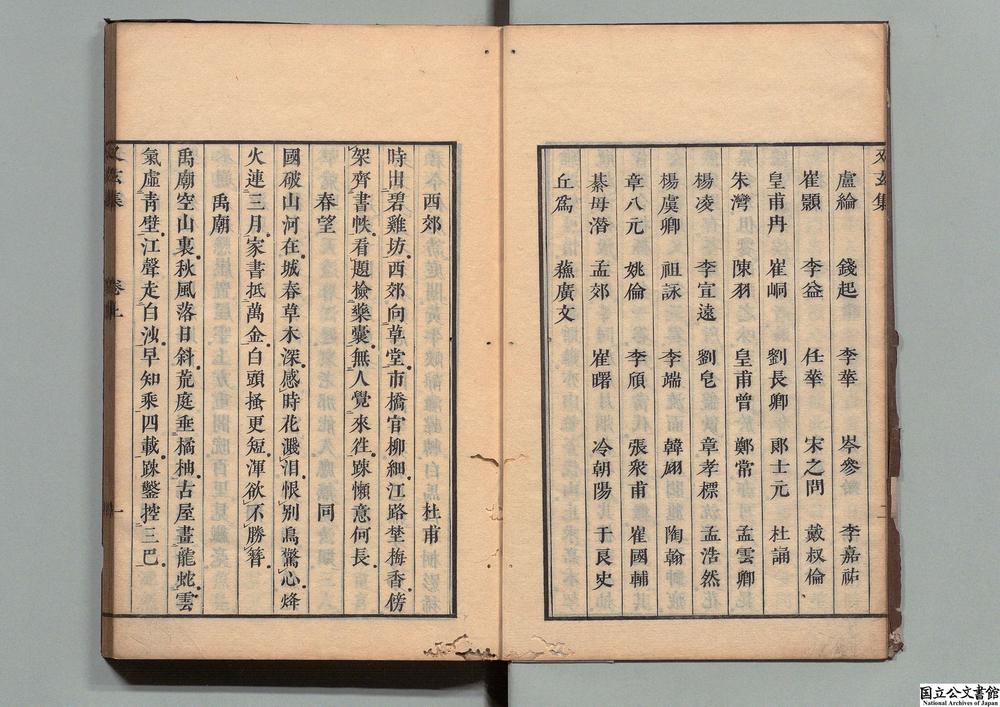 盧綸 錢起 李華 岑參 李嘉祐
崔顥 李益 任華 宋之問 戴叔倫
皇甫冉 崔峒 劉長卿 郎士元 杜誦
朱灣 陳羽 皇甫曾 鄭常 孟雲卿
楊凌 李宣遠 劉皂 章孝標 孟浩然
楊虞卿 祖詠 李端 韓翃 陶翰
章八元 姚倫 李頎 張衆甫 崔國輔
綦毋潛 孟郊 崔曙 冷朝陽 于良史
丘爲 蘓廣文
又玄集
西郊 杜甫
時出碧雞坊西郊向草堂市橋官柳細江路埜梅香傍
架齊書帙看題檢藥囊無人覺來往踈懶意何長
春望 同
國破山河在城春草木深感時花濺泪恨别鳥驚心烽
火連三月家書抵萬金白頭搔更短渾欲不勝簪
禹廟
禹廟空山裏秋風落日斜荒庭垂橘柚古屋畫龍蛇雲
氣虛青壁江聲走白沙早知乘四載踈鑿控三巴
又玄集 卷上 一
国立公文書館
National Archives of Japan